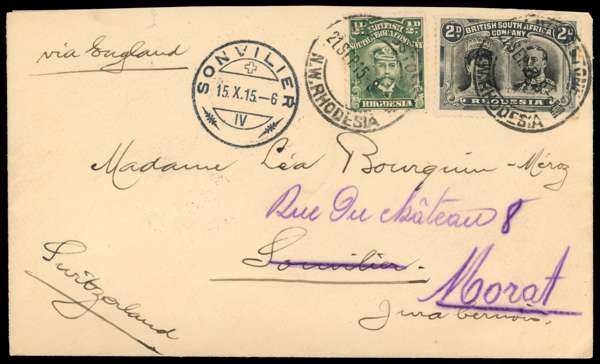 via England
SONVILIER
15.X.15-6
IV
½D. BRITISH SOUTH AFRICA Cº ½D.
RHODESIA
21 SEP 15
N.W. RHODESIA
2D. BRITISH SOUTH AFRICA COMPANY 2D.
RHODESIA
21 SEP
RHODESIA
Madame Léa Bourquin-Méroz
Rue Du Château 8
Sonvilier.
Morat
Jura bernois.
Switzerland